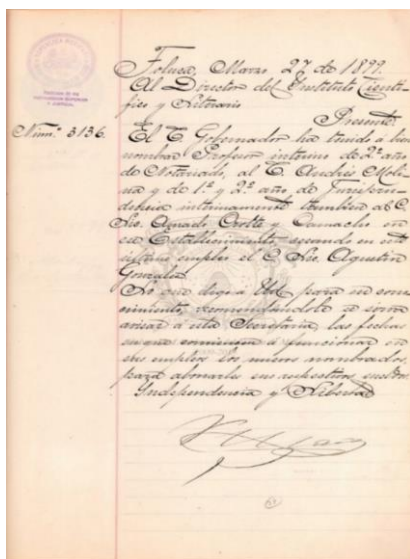 Toluca, Marzo 27 de 1899.
Al Director del Instituto Cientí-
fico y Literario
Presente
Núm.º 3136.
El C. Gobernador ha tenido á bien
nombrar Profesor interino de 2º año
de Notariado, al C. Andrés Moli-
na y de 1º y 2º año de Jurispru-
dencia interinamente tambien al C.
Lic. y Camacho en
ese Establecimiento, cesando en este
último empleo el C. Lic. Agustin
Gonzalez
Lo que digo á Ud. para su cono-
cimiento, recomendándole se sirva
avisar á esta Secretaría, las fechas
en que comiencen á funcionar en
sus empleos los nuevos nombrados,
para abonarles sus respectivos sueldos.
Independencia y Libertad